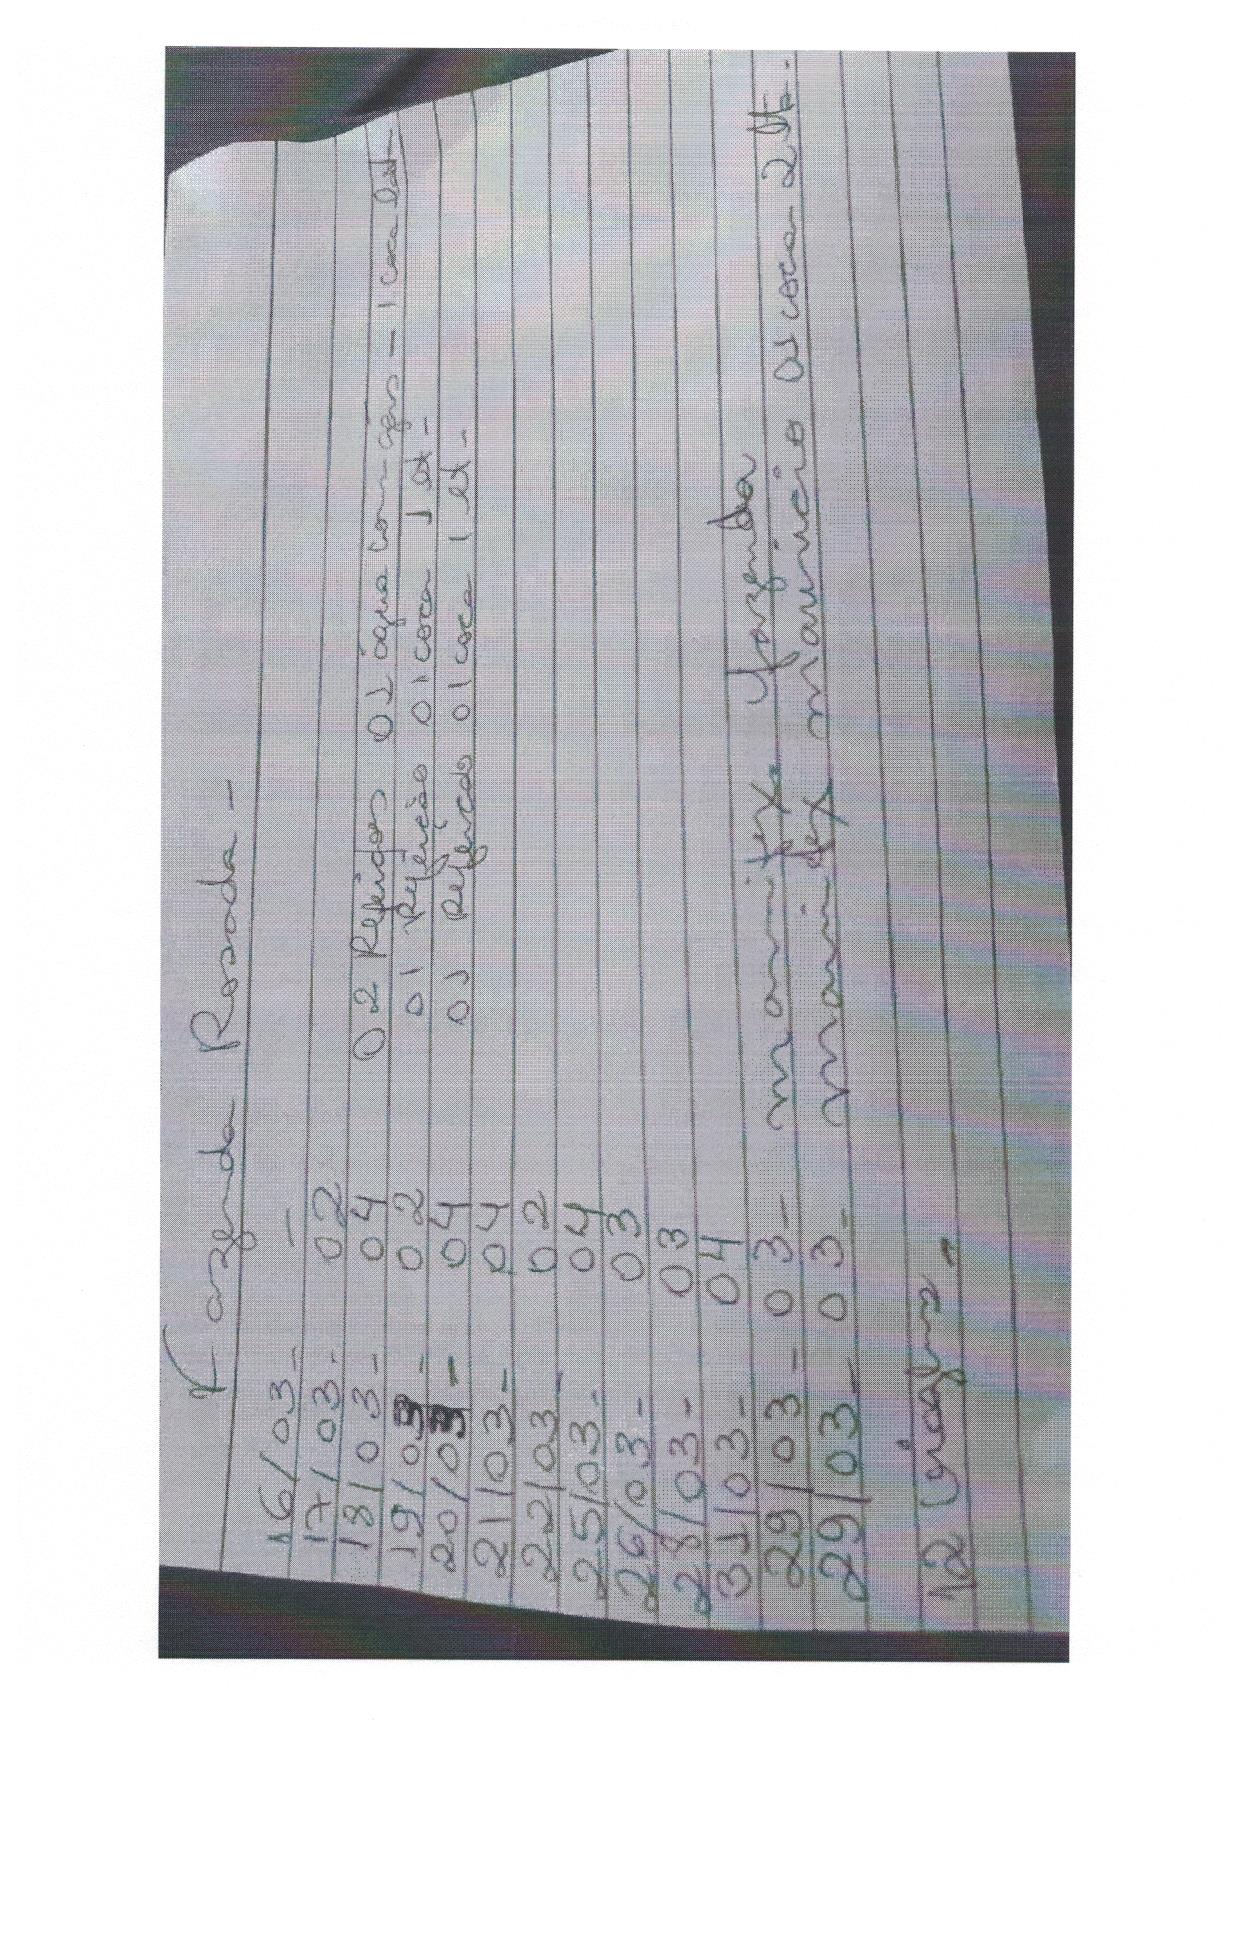 Fazenda Rosada -
16/03 - -
17/03 - 02
18/03 - 04 02 Refeições 01 água com gás - 1 coca lat
19/03 - 02 01 Refeição 01 coca 1 lt -
20/03 - 04 01 Refeição 01 coca 1 lt -
21/03 - 04
22/03 - 02
25/03 - 04
26/03 - 03
28/03 - 03
31/03 - 04
29/03 - 03 - marmitex Fazenda
29/03 - 03 - marmitex mauricio 01 coca 2 lt -
12 viagens -